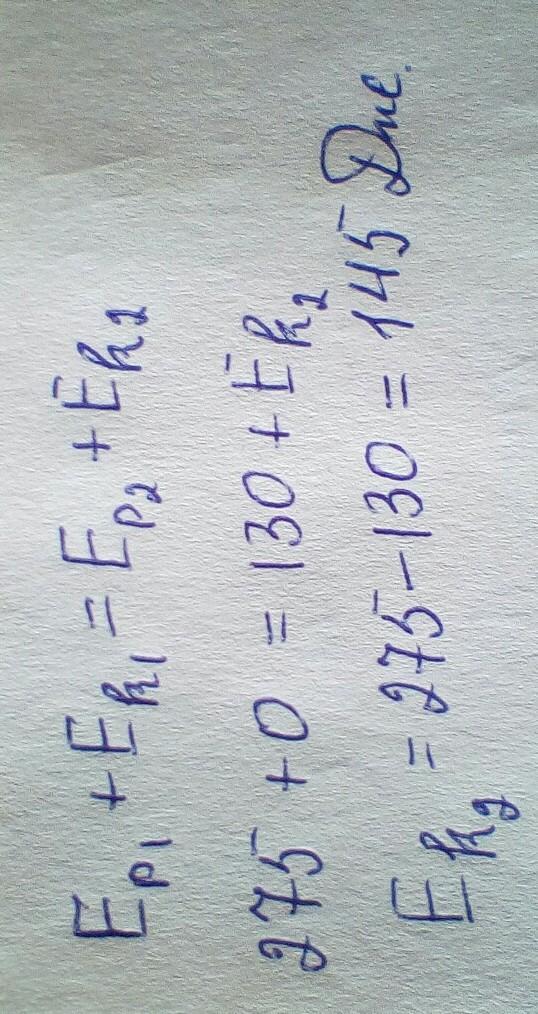 Ep₁ + Ek₁ = Ep₂ + Ek₂
275 + 0 = 130 + Ek₂
Ek₂ = 275 - 130 = 145 Дж.